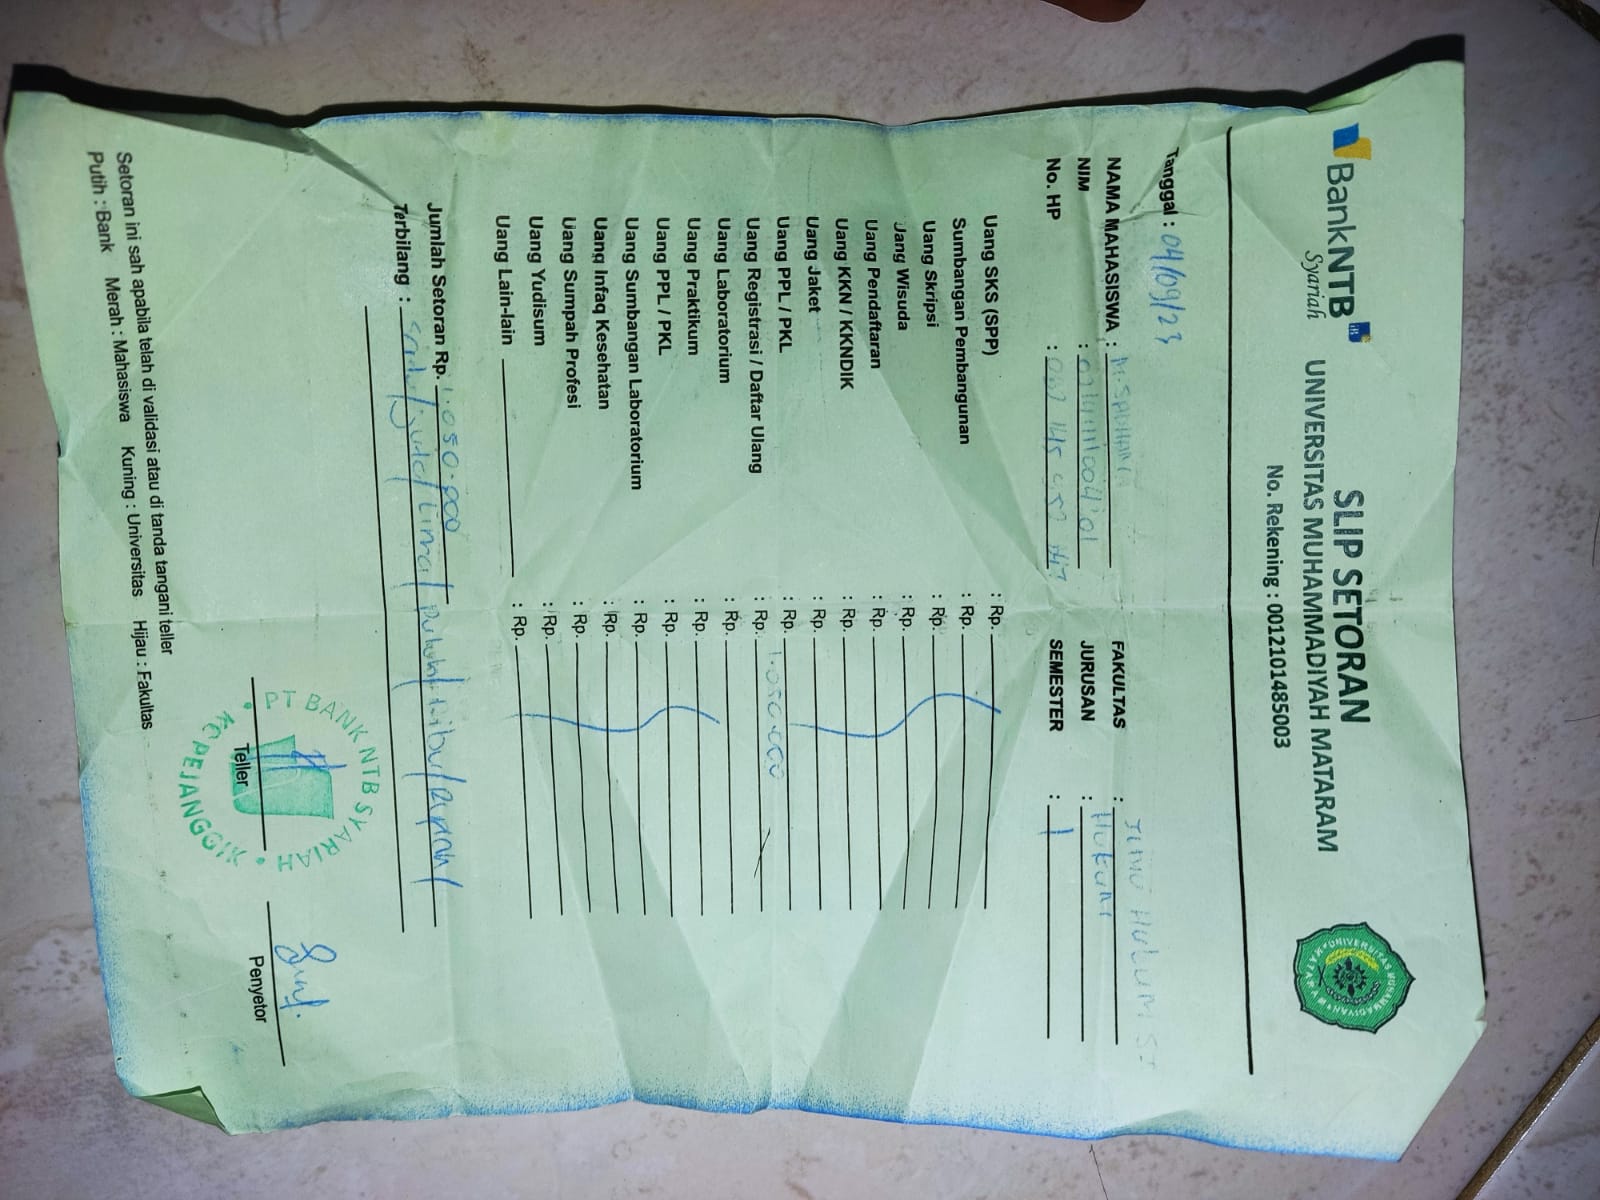 BankNTB
Syariah
SLIP SETORAN
UNIVERSITAS MUHAMMADIYAH MATARAM
No. Rekening : 0012101485003
UNIVERSITAS MUHAMMADIYAH MATARAM
Tanggal : 04/09/23
NAMA MAHASISWA :
FAKULTAS : ILMU HUKUM
NIM :
JURUSAN : Hukum
No. HP :
SEMESTER : 1
Uang SKS (SPP) : Rp.
Sumbangan Pembangunan : Rp.
Uang Skripsi : Rp.
Uang Wisuda : Rp.
Uang Pendaftaran : Rp.
Uang KKN / KKNDIK : Rp.
Uang Jaket : Rp.
Uang PPL / PKL : Rp.
Uang Registrasi / Daftar Ulang : Rp. 1.050.000
Uang Laboratorium : Rp.
Uang Praktikum : Rp.
Uang PPL / PKL : Rp.
Uang Sumbangan Laboratorium : Rp.
Uang Infaq Kesehatan : Rp.
Uang Sumpah Profesi : Rp.
Uang Yudisum : Rp.
Uang Lain-lain : Rp.
Jumlah Setoran Rp. 1.050.000
Terbilang : satu/juta/lima/puluh/ribu/rupiah/
PT BANK NTB SYARIAH
KC PEJANGGIK
Teller
Penyetor
Setoran ini sah apabila telah di validasi atau di tanda tangani teller
Putih : Bank Merah : Mahasiswa Kuning : Universitas Hijau : Fakultas